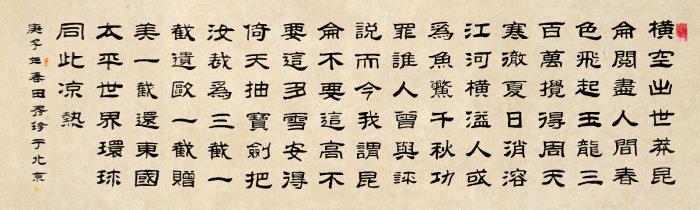 橫空出世莽昆
侖閱盡人間春
色飛起玉龍三
百萬攪得周天
寒徹夏日消溶
江河橫溢人或
爲魚鱉千秋功
罪誰人曾與評
説而今我謂昆
侖不要這高不
要這多雪安得
倚天抽寶劍把
汝裁爲三截一
截遺歐一截贈
美一截還東國
太平世界環球
同此凉熱
庚子春田秀珍于北京